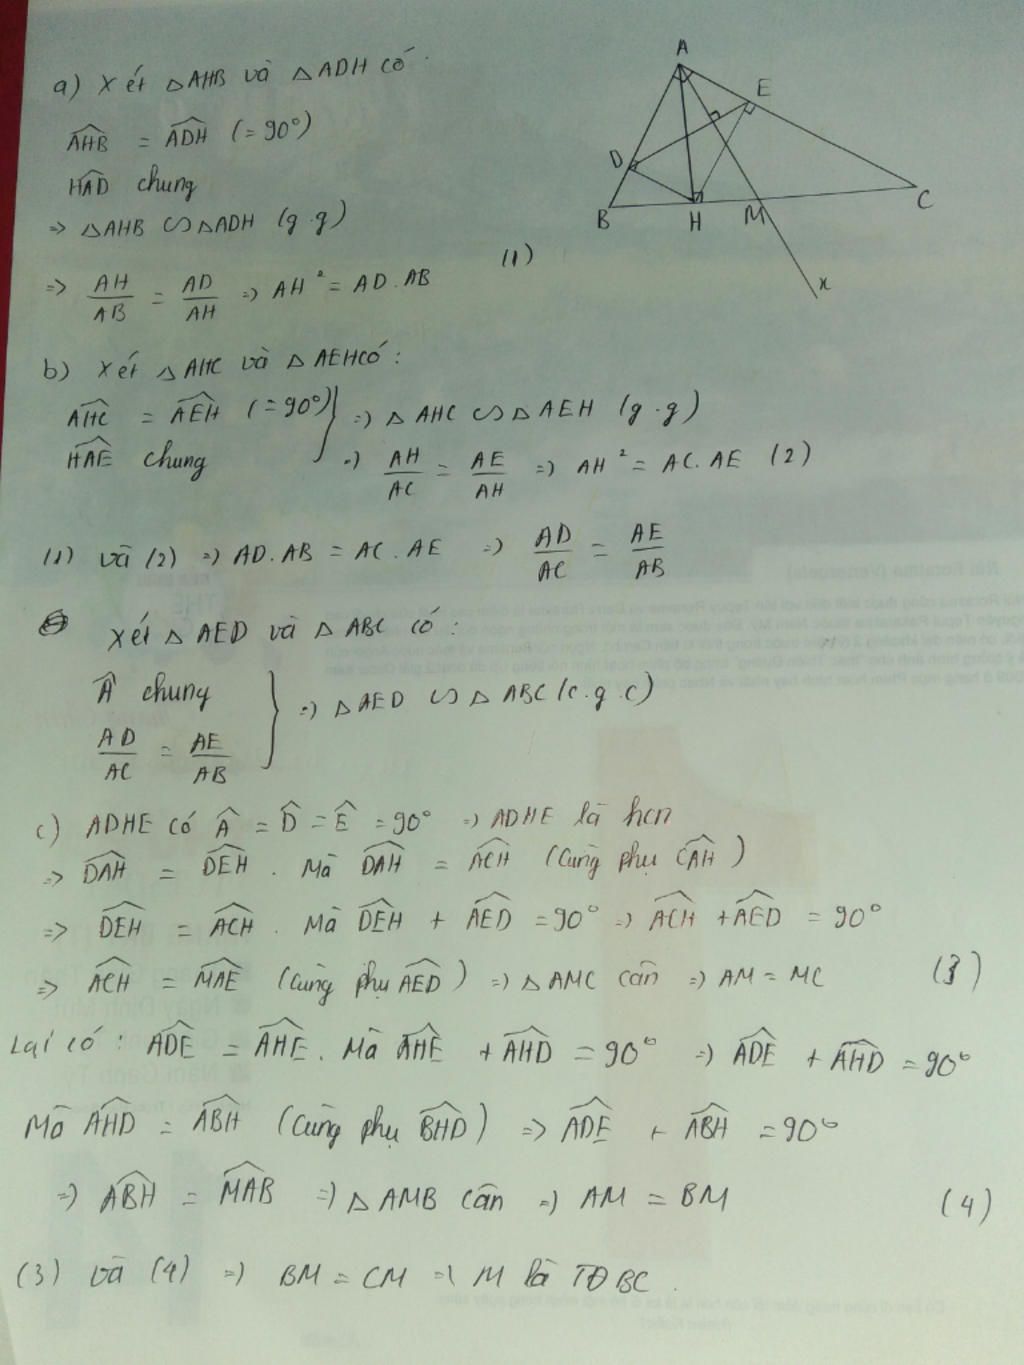 a) Xét △AHB và △ADH có
A
E
D
B
H
M
C
x
\widehat{AHB} = \widehat{ADH} (= 90°)
\widehat{HAD} chung
=> △AHB ∽ △ADH (g.g)
=> \frac{AH}{AB} = \frac{AD}{AH} => AH² = AD.AB (1)
b) Xét △AHC và △AEH có:
\widehat{AHC} = \widehat{AEH} (= 90°) } => △AHC ∽ △AEH (g.g)
\widehat{HAE} chung => \frac{AH}{AC} = \frac{AE}{AH} => AH² = AC.AE (2)
(1) và (2) => AD.AB = AC.AE => \frac{AD}{AC} = \frac{AE}{AB}
Xét △AED và △ABC có:
\widehat{A} chung } => △AED ∽ △ABC (c.g.c)
\frac{AD}{AC} = \frac{AE}{AB}
c) ADHE có \widehat{A} = \widehat{D} = \widehat{E} = 90° => ADHE là hcn
=> \widehat{DAH} = \widehat{DEH}. Mà \widehat{DAH} = \widehat{ACH} (Cùng phụ \widehat{CAH})
=> \widehat{DEH} = \widehat{ACH}. Mà \widehat{DEH} + \widehat{AED} = 90° => \widehat{ACH} + \widehat{AED} = 90°
=> \widehat{ACH} = \widehat{MAE} (cùng phụ \widehat{AED}) => △AMC cân => AM = MC (3)
Lại có: \widehat{ADE} = \widehat{AHE}. Mà \widehat{AHE} + \widehat{AHD} = 90° => \widehat{ADE} + \widehat{AHD} = 90°
Mà \widehat{AHD} = \widehat{ABH} (Cùng phụ \widehat{BHD}) => \widehat{ADE} + \widehat{ABH} = 90°
=> \widehat{ABH} = \widehat{MAB} => △AMB cân => AM = BM (4)
(3) và (4) => BM = CM => M là TĐ BC.